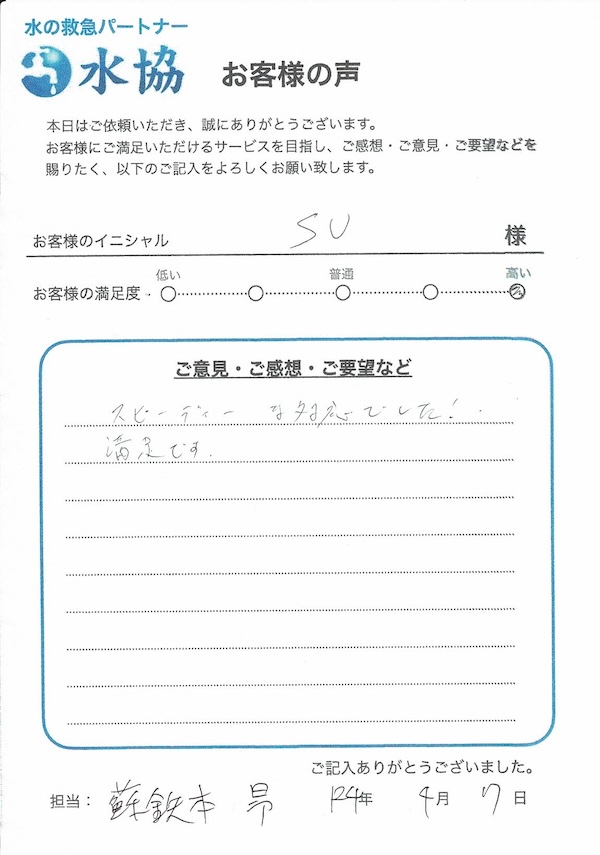 水の救急パートナー
水協 お客様の声
本日はご依頼いただき、誠にありがとうございます。
お客様にご満足いただけるサービスを目指し、ご感想・ご意見・ご要望などを
賜りたく、以下のご記入をよろしくお願い致します。
お客様のイニシャル SU 様
低い 普通 高い
お客様の満足度
ご意見・ご感想・ご要望など
スピーディーな対応でした!
満足です.
ご記入ありがとうございました。
担当: 蘇鉄本 昂 R4年 4月 7日